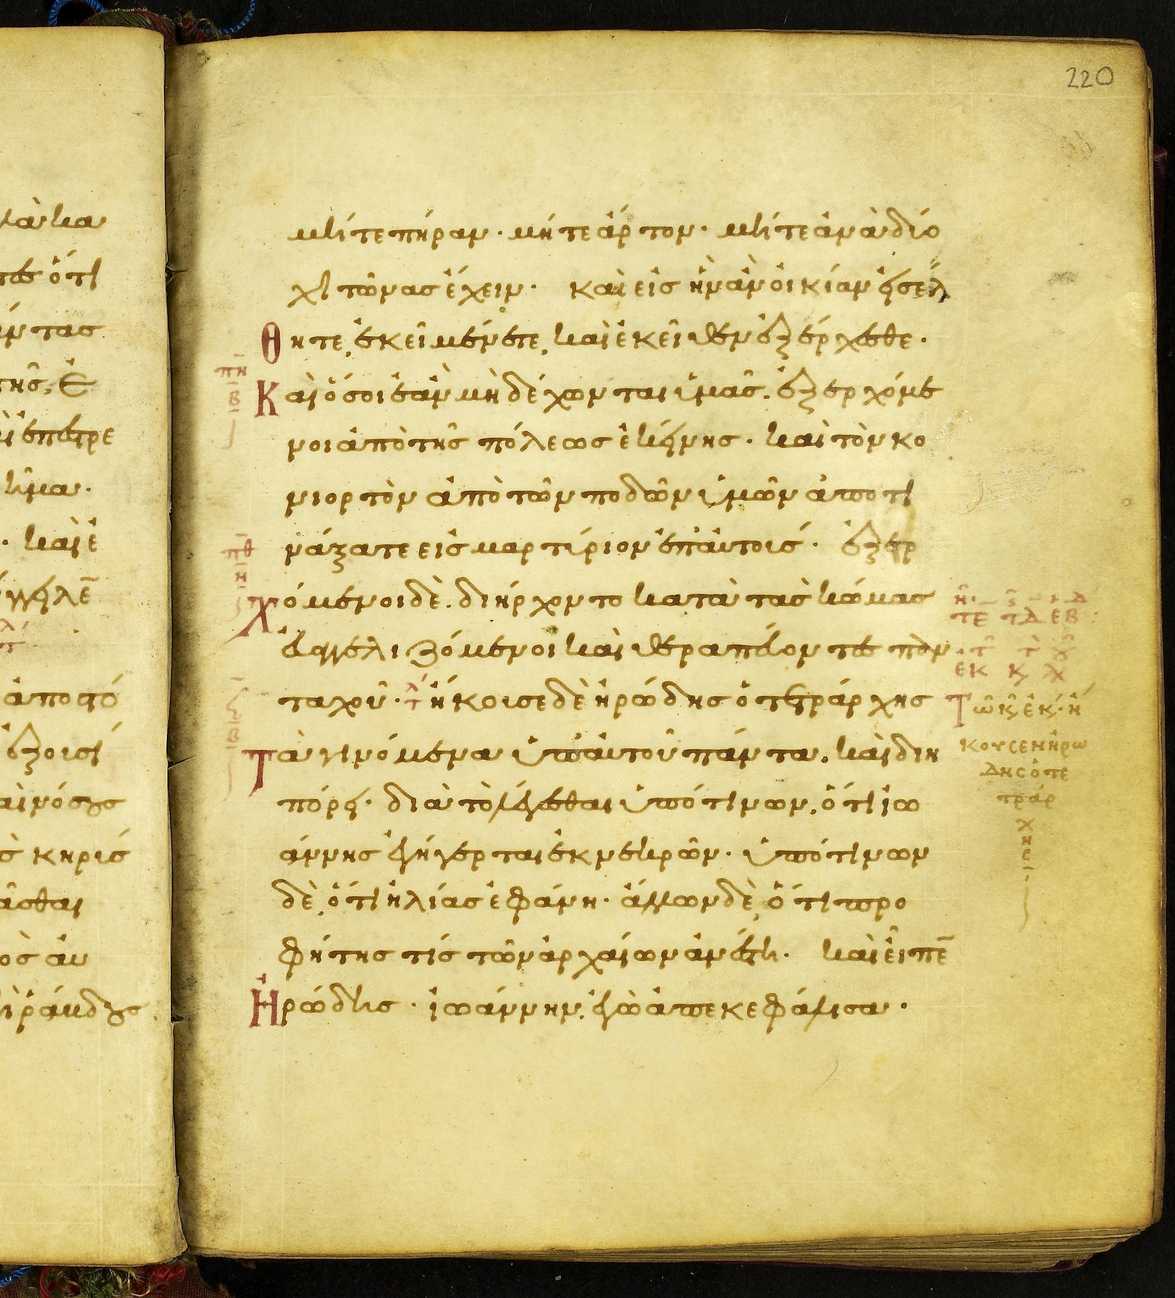 220
μήτε πήραν· μήτε ἄρτον· μήτε ἀνὰ δύο
χιτῶνας ἔχειν· καὶ εἰς ἣν ἂν οἰκίαν εἰσέλ
θητε, ἐκεῖ μένετε, καὶ ἐκεῖθεν ἐξέρχεσθε.
Καὶ ὅσοι ἐὰν μὴ δέχωνται ὑμᾶς. ἐξερχόμε
νοι ἀπὸ τῆς πόλεως ἐκείνης· καὶ τὸν κο
νιορτὸν ἀπὸ τῶν ποδῶν ὑμῶν ἀποτι
νάξατε εἰς μαρτύριον ἐπ' αὐτούς· ἐξερ
Χόμενοι δὲ. διήρχοντο κατὰ τὰς κώμας
εὐαγγελιζόμενοι καὶ θεραπεύοντες παν
ταχοῦ· ἤκουσε δὲ ἡρώδης ὁ τετράρχης
Τὰ γινόμενα ὑπ' αὐτοῦ πάντα. καὶ διη
πόρει· διὰ τὸ λέγεσθαι ὑπό τινων, ὅτι ἰω
άννης ἐγήγερται ἐκ νεκρῶν· ὑπό τινων
δὲ, ὅτι ἡλίας ἐφάνη· ἄλλων δὲ, ὅτι προ
φήτης τίς τῶν ἀρχαίων ἀνέστη· καὶ εἶπε
Ἡρώδης· ἰωάννην, ἐγὼ ἀπεκεφάλισα·
πη
β
πθ
η
β
Τῶ κ ἐκ ἤ
κουσεν ἡρώ
δης ὁ τε
τράρ
χ
η
ς